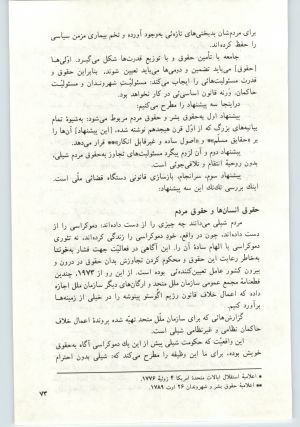 برای مردم‌شان بدبختی‌های تازه‌ئی به‌وجود آورده و تخم بیماری مزمن سیاسی
را حفظ کرده‌اند.
جامعه با تأمین حقوق و با توزیع قدرت‌ها شکل می‌گیرد. اولی‌ها
[حقوق] می‌باید تضمین و دومی‌ها می‌باید تعیین شوند. بنابراین حقوق و
قدرت مسئولیت‌هائی را ایجاب می‌کند: مسئولیت شهروندان و مسئولیت
حاکمان. ورنه قانون اساسی‌ئی در کار نخواهد بود.
دراینجا سه پیشنهاد را مطرح می‌کنیم:
پیشنهاد اول به‌حقوق بشر و حقوق مردم مربوط می‌شود: به‌شیوهٔ تمام
بیانیه‌های بزرگ که از اول قرن هیجدهم نوشته شده، [این پیشنهاد] آن‌ها را
بر «حقایق مسلم»* و «اصول ساده و غیرقابل انکار»** قرار می‌دهد.
پیشنهاد دوم و آن لزوم پیگرد مسئولیت‌های تجاوز به‌حقوق مردم شیلی،
بدون روحیهٔ انتقام و تلافی‌جوئی است.
پیشنهاد سوم، سرانجام، بازسازی قانونی دستگاه قضائی ملی است.
اینک بررسی تک‌تک این سه پیشنهاد:
حقوق انسان‌ها و حقوق مردم
مردم شیلی می‌دانند چه چیزی را از دست داده‌اند: دموکراسی را از
دست داده‌اند، چون در واقع، خود دموکراسی را زندگی کرده‌اند، نه تئوری
دموکراسی یا الهام سادهٔ آن را. این آگاهی در فعالیت جهت فشار به‌خونتا
به‌خاطر رعایت این حقوق و محکوم کردن تجاوزش بدان حقوق در درون و
بیرون کشور عامل تعیین‌کننده‌ئی بوده است. از این رو از ۱۹۷۳، چندین
قطعنامهٔ مجمع عمومی ملل متحد و ارگان‌های دیگر سازمان ملل اجازه
داده که اعمال خلاف قانون رژیم اگوستو پینوشه را در خیلی از زمینه‌ها
مردود بدانند.
گزارش‌هائی که برای سازمان ملل متحد تهیه شده پروندهٔ اعمال خلاف
حاکمان نظامی و غیرنظامی شیلی است.
این واقعیت که حکومت شیلی پیش از این یک دموکراسی آگاه به‌حقوق
خویش بوده، برای ما این وظیفه را مطرح می‌کند که: شیلی بدون احترام
* اعلامیهٔ استقلال ایالات متحدهٔ امریکا ۴ ژوئیهٔ ۱۷۷۶.
** اعلامیهٔ حقوق بشر و شهروندان ۲۶ اوت ۱۷۸۹.
۷۳